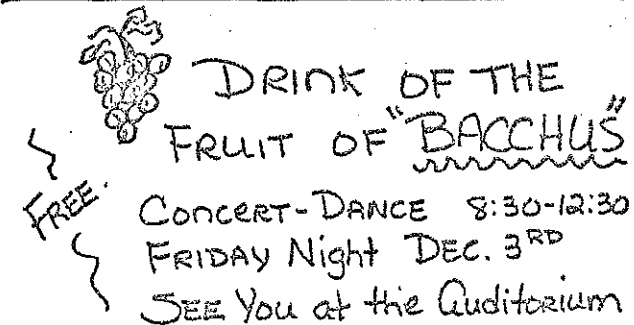 DRINK OF THE
FRUIT OF "BACCHUS"
FREE.
CONCERT-DANCE 8:30-12:30
FRIDAY Night DEC. 3RD
SEE You at the Auditorium